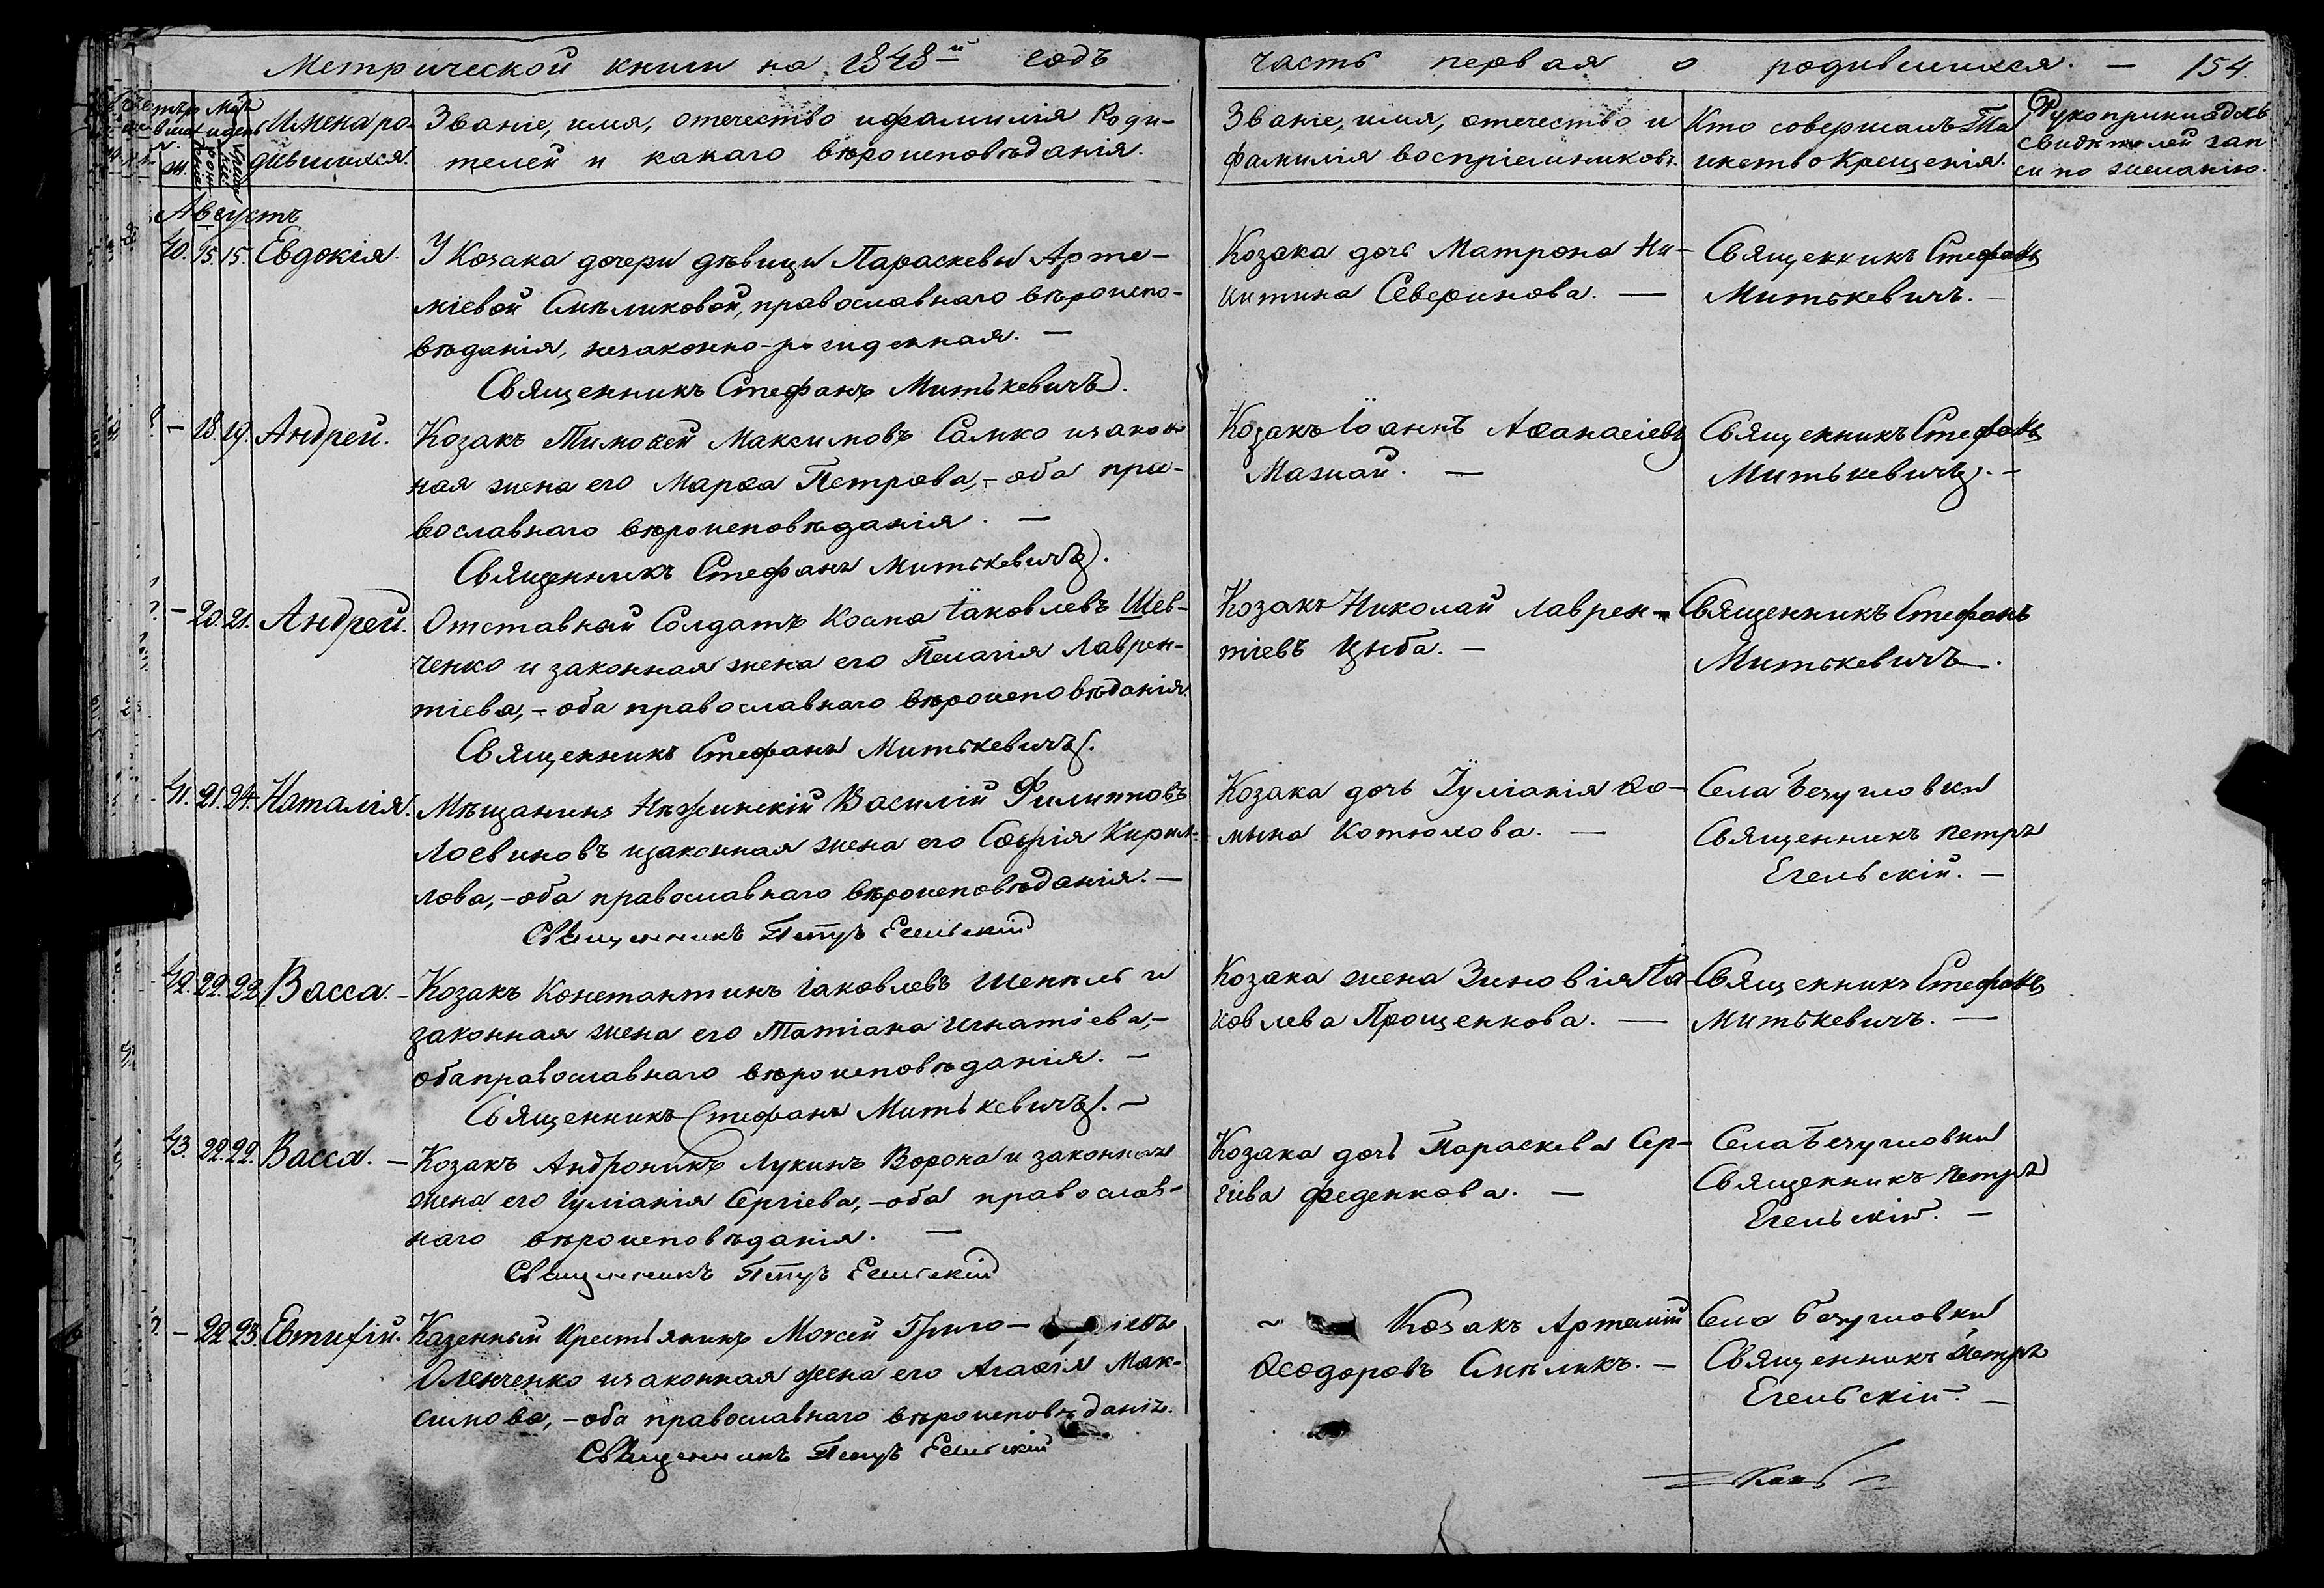 Метрической книги на 1848й годъ
часть первая о родившихся. — 154.
Имена ро-
дившихся.
Званіе, имя, отечество и фамилія Роди-
телей и какаго вѣроисповѣданія.
Званіе, имя, отечество и
фамилія воспріемниковъ.
Кто совершалъ Та
инство Крещенія.
Рукоприкладств
свидѣтелей зап
си по желанію.
Августъ
40. 15. 15. Евдокія.
У Козака дочери дѣвицы Параскевы Арте-
міевой Смѣликовой, православнаго вѣроиспо-
вѣданія, незаконно-рожденная. —
Священникъ Стефанъ Митькевичъ.
Козака дочь Матрона Ни-
китина Северинова. —
Священникъ Стефанъ
Митькевичъ. —
— 18. 19. Андрей.
Козакъ Тимоѳей Максимовъ Самко изакон
ная жена его Марѳа Петрова, – оба пра-
вославнаго вѣроисповѣданія. —
Священникъ Стефанъ Митькевичъ.
Козакъ Іоаннъ Аѳанасіевъ
Мазнай. —
Священникъ Стефанъ
Митькевичъ. —
— 20. 21. Андрей.
Отставный Солдатъ Косма Іаковлевъ Шев-
ченко и законная жена его Пелагія Лаврен-
тіева, – оба православнаго вѣроисповѣданія.
Священникъ Стефанъ Митькевичъ.
Козакъ Николай Лаврен-
тіевъ Цыба. —
Священникъ Стефанъ
Митькевичъ.
41. 21. 24. Наталія.
Мѣщанинъ Нѣжинскій Василій Филипповъ
Лоевиновъ изаконная жена его Софія Кирил-
лова, – оба православнаго вѣроисповѣданія. —
Священникъ Петръ Егельскій
Козака дочь Іуліанія Ѳо-
мина Котюхова. —
Села Безугловки
Священникъ Петръ
Егельскій. —
42. 22. 23. Васса. —
Козакъ Константинъ Іаковлевъ Шепель и
законная жена его Татіана Игнатіева, –
оба православнаго вѣроисповѣданія. —
Священникъ Стефанъ Митькевичъ. —
Козака жена Зиновія Іа-
ковлева Прощенкова. —
Священникъ Стефанъ
Митькевичъ. —
43. 22. 22. Васса. —
Козакъ Андроникъ Лукинъ Ворона и законная
жена его Іуліанія Сергіева, – оба православ-
наго вѣроисповѣданія. —
Священникъ Петръ Егельскій
Козака дочь Параскева Сер-
гіева Феденкова. —
Села Безугловки
Священникъ Петръ
Егельскій. —
— 22. 23. Евтихій.
Казенный Крестьянинъ Моисей Григо- ріевъ
Оленченко изаконная жена его Агаѳія Мак-
симова, – оба православнаго вѣроисповѣданія.
Священникъ Петръ Егельскій
Козакъ Артемій
Ѳеодоровъ Смѣликъ. —
Села Безугловки
Священникъ Петръ
Егельскій. —